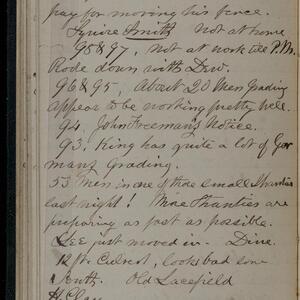 pay for moving his fence.
Squire Smith Not at home
98 & 97, not at work till P.M.
Rode down with Dew.
96 & 95, About 20 Men Grading
appear to be working pretty well.
94, John Freeman's Notice.
93, King has quite a lot of Ger
mans grading.
53 Men in one of those small Shanties
last night! More Shanties are
preparing as fast as possible.
Lee just moved in.
12 ft Culvert, looks bad
Old
H. Clay